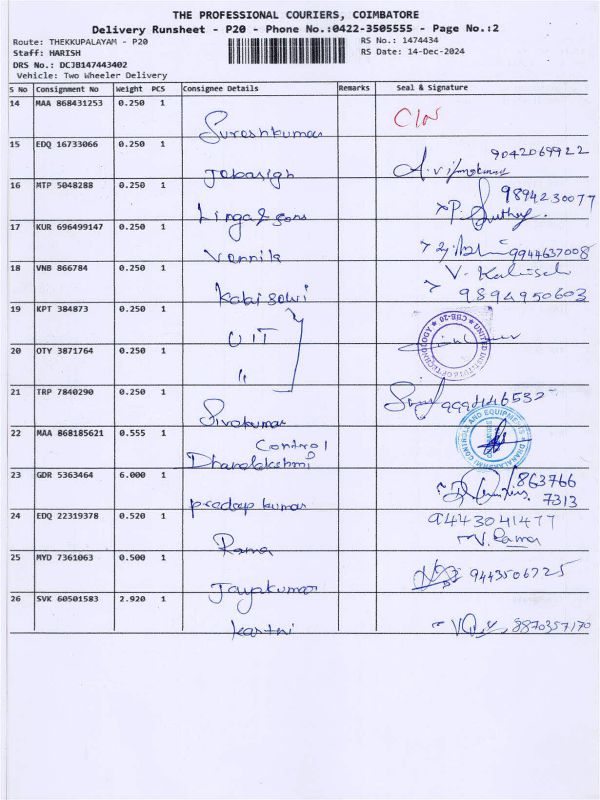 THE PROFESSIONAL COURIERS, COIMBATORE
Delivery Runsheet - P20 - Phone No.:0422-3505555 - Page No.:2
Route: THEKKUPALAYAM - P20
RS No.: 1474434
Staff: HARISH
RS Date: 14-Dec-2024
DRS No.: DCJB147443402
Vehicle: Two Wheeler Delivery
S No Consignment No Weight PCS Consignee Details Remarks Seal & Signature
14 MAA 868431253 0.250 1 Sureshkumar CIN
15 EDQ 16733066 0.250 1 Jebasigh 9042069922
16 MTP 5048288 0.250 1 Linga & sons P. 9894230077
17 KUR 696499147 0.250 1 Vannik 9944637008
18 VNB 866784 0.250 1 Kalaiselvi V. 9894950603
19 KPT 384873 0.250 1 UIT UNITED INSTITUTE OF TECHNOLOGY CBE-20
20 OTY 3871764 0.250 1 "
21 TRP 7840290 0.250 1 Sivakumar
22 MAA 868185621 0.555 1 Control Dhanalakshmi DHANALAKSHMI CONTROL AND EQUIPMENTS
23 GDR 5363464 6.000 1 pradeep kumar 863766 7313
24 EDQ 22319378 0.520 1 Rama 9443041477 V. Rama
25 MYD 7361063 0.500 1 Jayakumar 9443506725
26 SVK 60501583 2.920 1 8870357170